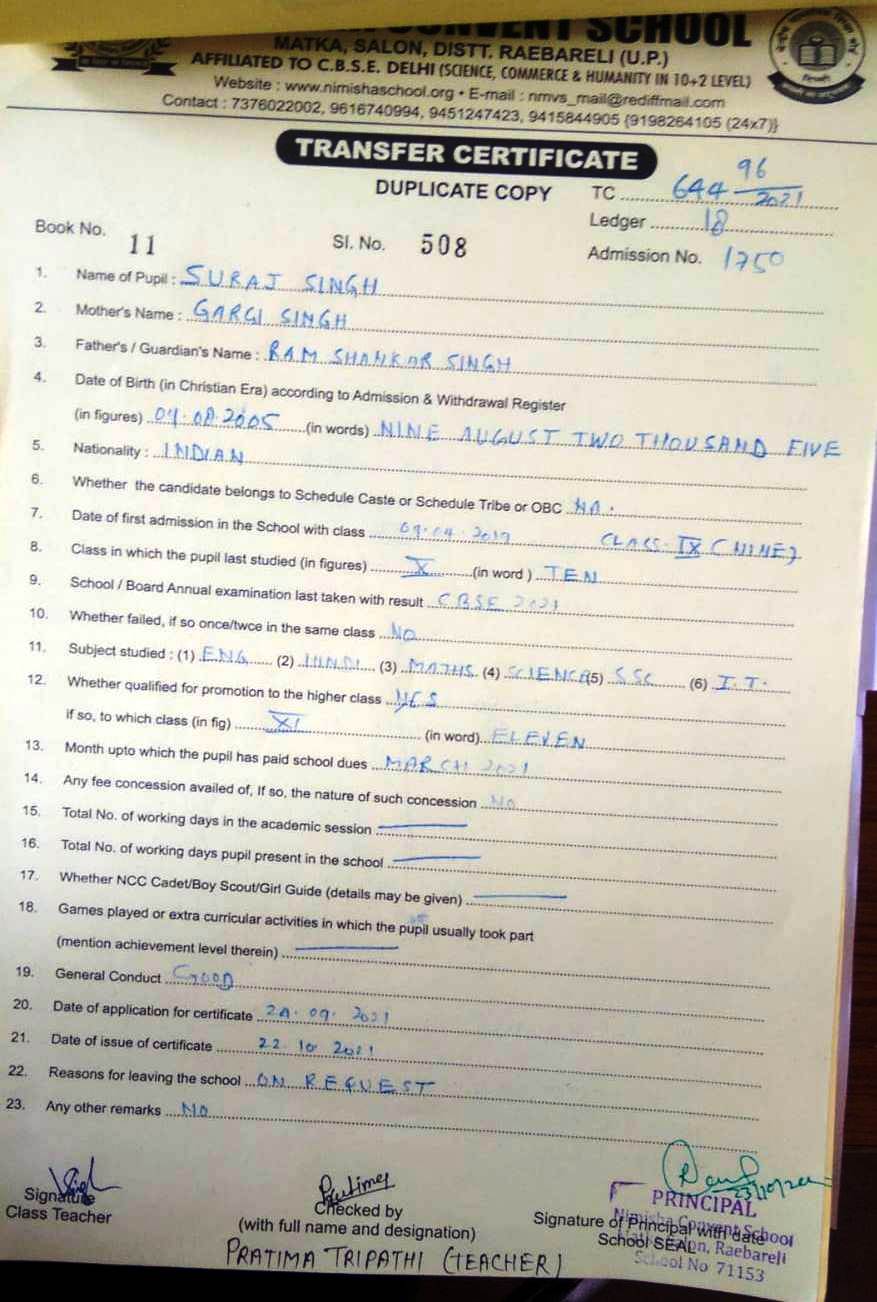 CONVENT SCHOOL
MATKA, SALON, DISTT. RAEBARELI (U.P.)
AFFILIATED TO C.B.S.E. DELHI (SCIENCE, COMMERCE & HUMANITY IN 10+2 LEVEL)
Website : www.nimishaschool.org • E-mail : nmvs_mail@rediffmail.com
Contact : 7376022002, 9616740994, 9451247423, 9415844905 {9198264105 (24x7)}
TRANSFER CERTIFICATE
DUPLICATE COPY TC 644 96/2021
Ledger 18
Book No. 11 Sl. No. 508 Admission No. 1750
1. Name of Pupil : SURAJ SINGH
2. Mother's Name : GARGI SINGH
3. Father's / Guardian's Name : RAM SHANKAR SINGH
4. Date of Birth (in Christian Era) according to Admission & Withdrawal Register
(in figures) 09.08.2005 (in words) NINE AUGUST TWO THOUSAND FIVE
5. Nationality : INDIAN
6. Whether the candidate belongs to Schedule Caste or Schedule Tribe or OBC NA.
7. Date of first admission in the School with class 09.04.2019 CLASS-IX (NINE)
8. Class in which the pupil last studied (in figures) X (in word ) TEN
9. School / Board Annual examination last taken with result CBSE 2021
10. Whether failed, if so once/twce in the same class NO
11. Subject studied : (1) ENG (2) HINDI (3) MATHS (4) SCIENCE (5) SSC (6) I.T.
12. Whether qualified for promotion to the higher class YES
if so, to which class (in fig) XI (in word) ELEVEN
13. Month upto which the pupil has paid school dues MARCH 2021
14. Any fee concession availed of, If so, the nature of such concession NO
15. Total No. of working days in the academic session
16. Total No. of working days pupil present in the school
17. Whether NCC Cadet/Boy Scout/Girl Guide (details may be given)
18. Games played or extra curricular activities in which the pupil usually took part
(mention achievement level therein)
19. General Conduct GOOD
20. Date of application for certificate 09. 2021
21. Date of issue of certificate 22.10 2021
22. Reasons for leaving the school ON REQUEST
23. Any other remarks NO
Signature
Class Teacher
Pratima
Checked by
(with full name and designation)
PRATIMA TRIPATHI (TEACHER)
Signature of Principal with date
School SEAL
PRINCIPAL
Nimisha Convent School
Salon, Raebareli
School No 71153